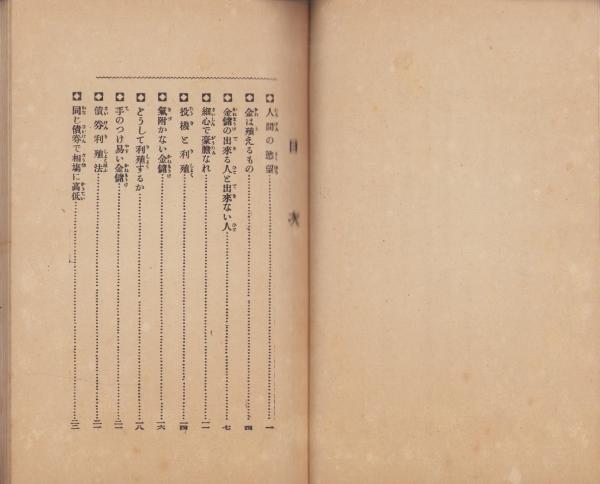 目次
人間の慾望……一
金は殖えるもの……四
金儲の出來る人と出來ない人……七
細心で豪膽なれ……一一
投機と利殖……一四
氣附かない金儲……一六
どうして利殖するか……一八
手のつけ易い金儲……二一
債券利殖法……二一
同じ債券で相場に高低……二三